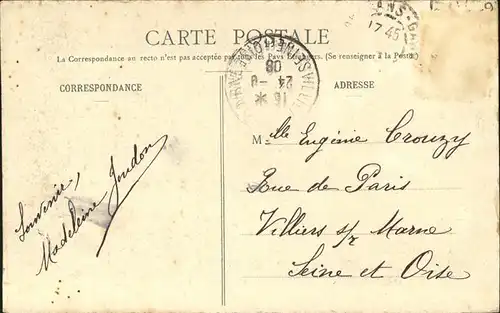 CARTE POSTALE
La Correspondance au recto n'est pas acceptée par tous les Pays Étrangers. (Se renseigner à la Poste)
CORRESPONDANCE
ADRESSE
17 45
16
24 - 8
08
Souvenir,
Madeleine
Mlle Eugénie Crouzy
Rue de Paris
Villiers s/r Marne
Seine et Oise